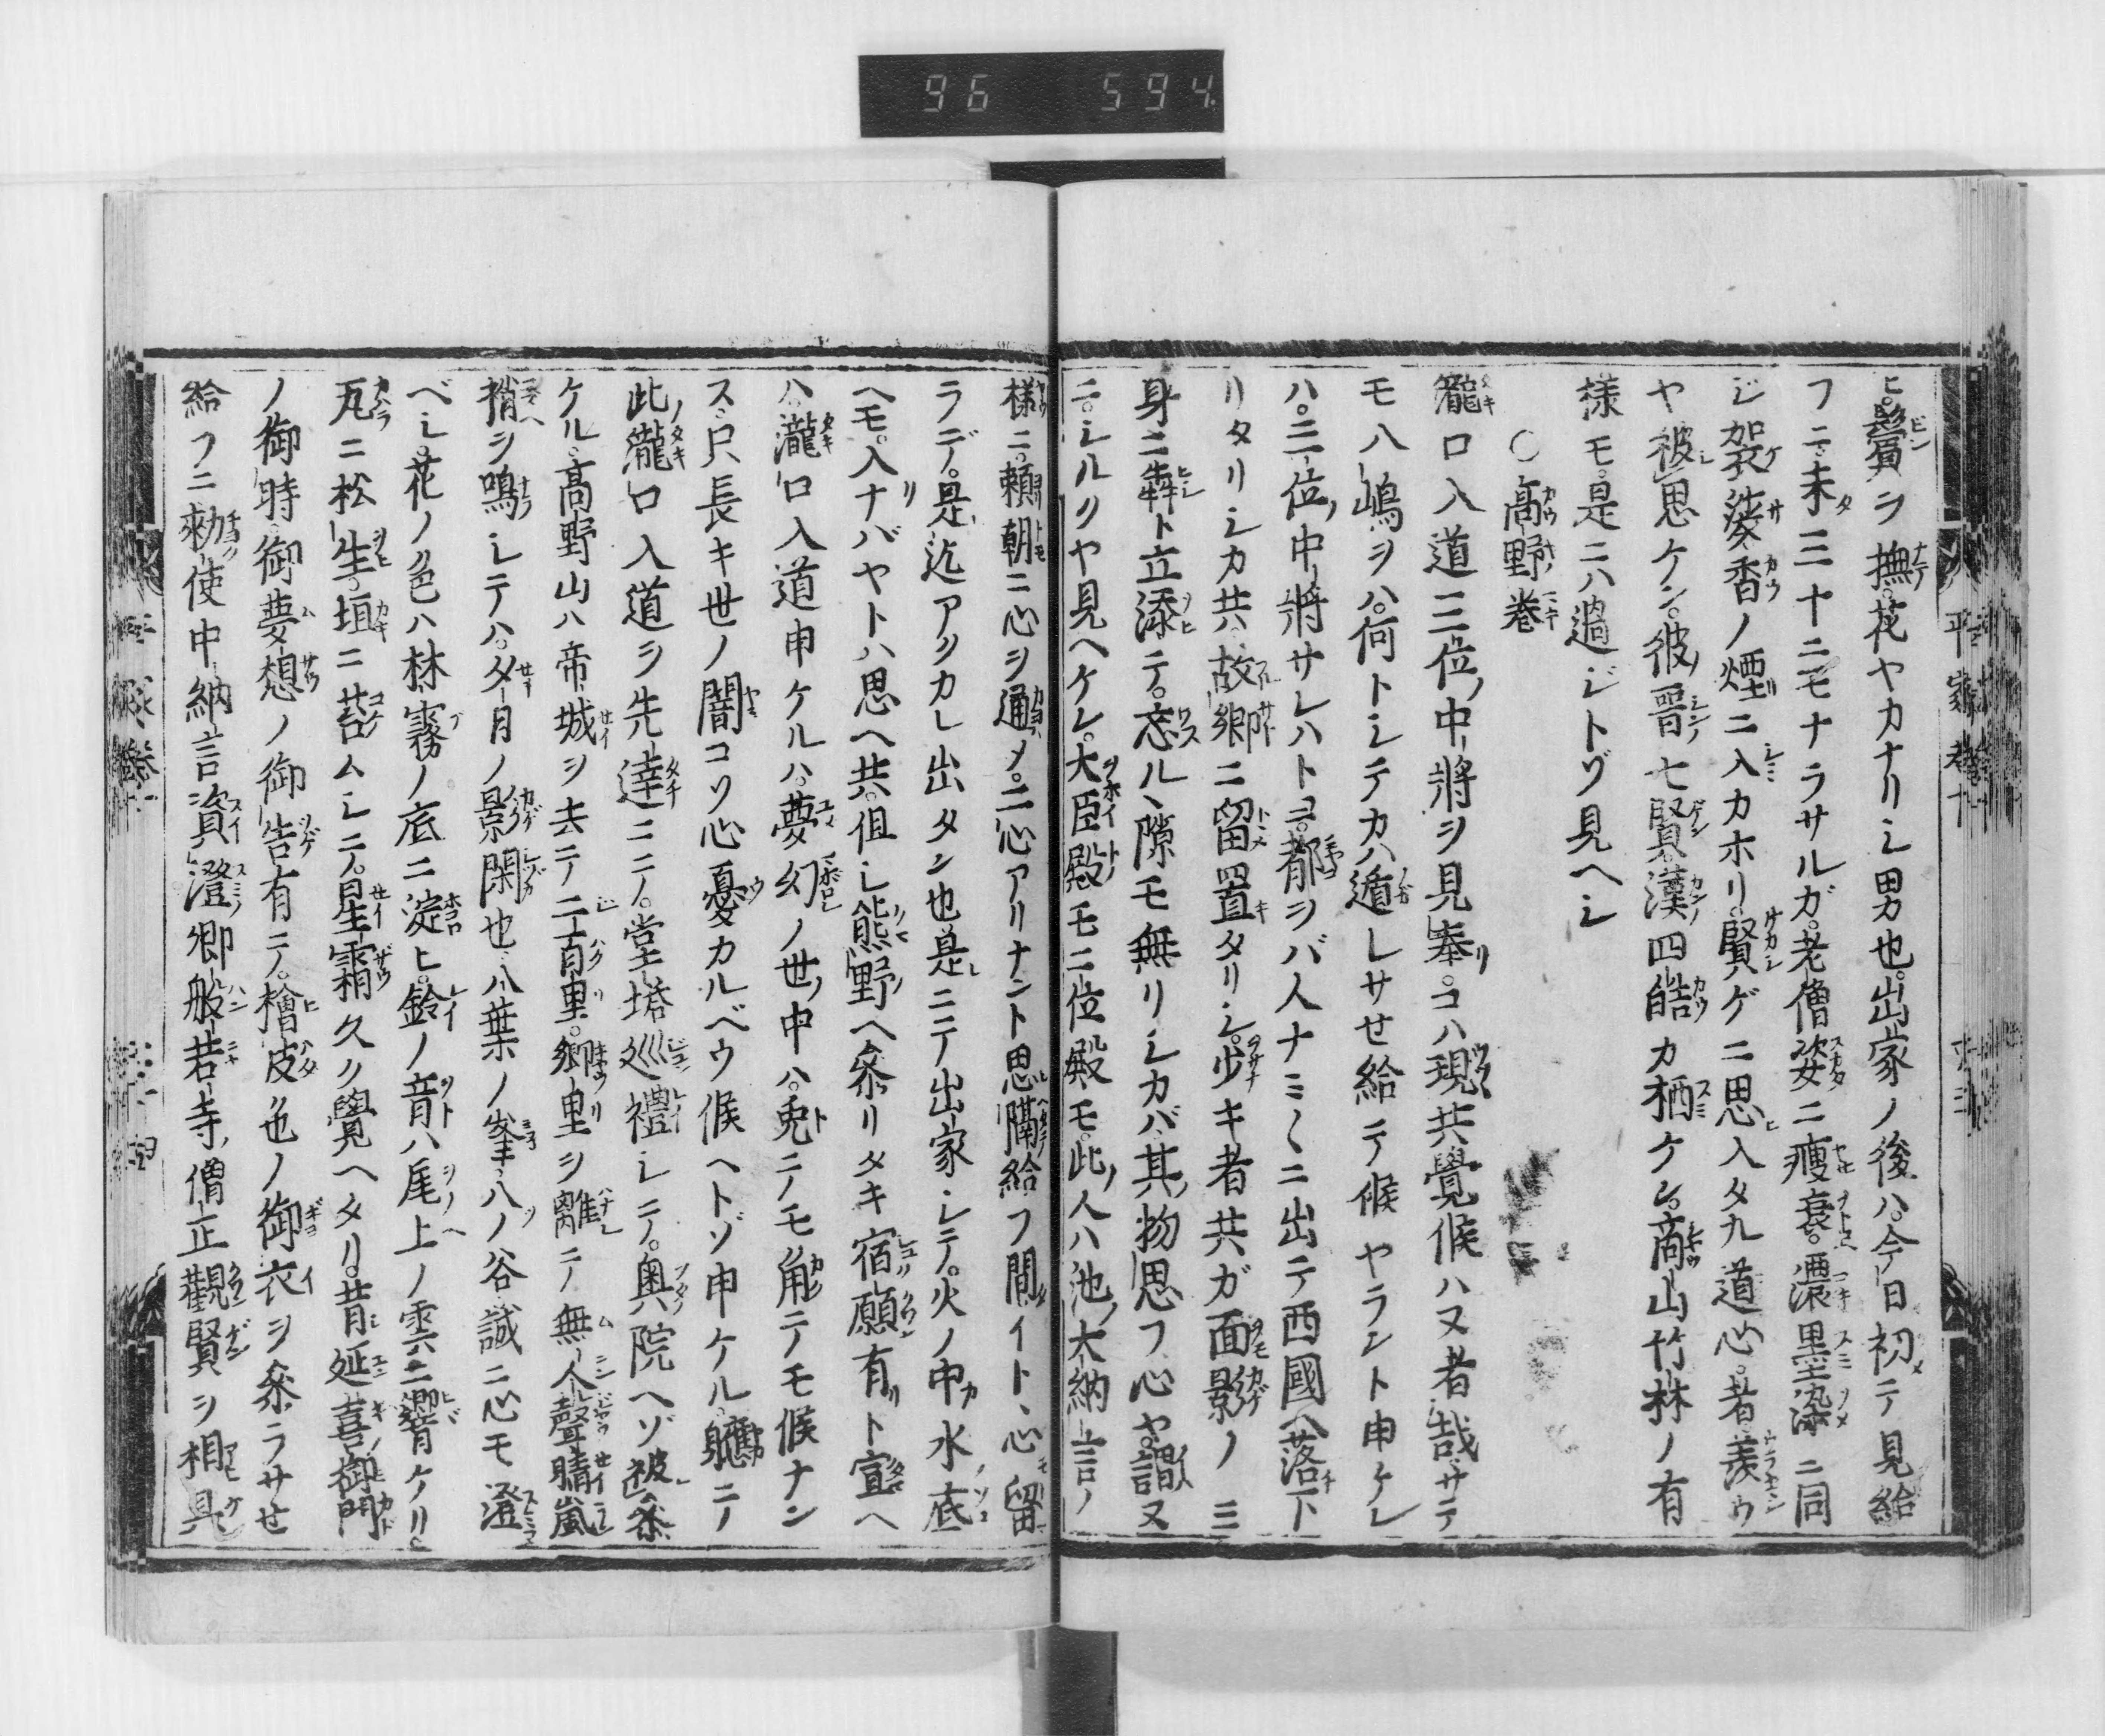 96 594
平家巻十
ヒ。鬢ヲ撫。花ヤカナリシ男也。出家ノ後ハ。今日初テ見給
フニ。未三十ニモナラサルガ。老僧姿ニ瘦衰。濃墨染ニ同
ジ袈裟。香ノ煙ニ入カホリ。賢ゲニ思入タル道心者。羨ウ
ヤ被思ケン。彼晋七賢。漢四皓カ栖ケン。商山竹林ノ有
様モ。是ニハ過ジトゾ見ヘシ
○高野巻
瀧口入道三位中將ヲ見奉リ。コハ現共覺候ハヌ者哉。サテ
モ八嶋ヲハ。何トシテカハ遁レサせ給テ候ヤラント申ケレ
ハ。三位中將サレハトヨ。都ヲバ人ナミ〱ニ出テ西國ヘ落下
リタリシカ共。故郷ニ留置タリシ。少キ者共ガ面影ノミ
身ニ犇ト立添テ。忘ルヽ隙モ無リシカバ。其物思フ心ヤ。謂ヌ
ニ。シルクヤ見ヘケン。大臣殿モ二位殿モ。此人ハ池大納言ノ
樣ニ。賴朝ニ心ヲ通メ。二心アリナント思隔給フ間。イトヽ心留
ラデ。是迄アクカレ出タン也。是ニテ出家シテ。火ノ中水底
ヘモ。入ナバヤトハ思ヘ共。但シ熊野ヘ參リタキ宿願有ト宣ヘ
ハ。瀧口入道申ケルハ。夢幻ノ世中ハ。兎ニテモ角ニテモ候ナン
ス。只長キ世ノ闇コソ心憂カルベウ候ヘトゾ申ケル。軈ニテ
此瀧口入道ヲ先達ニテ。堂塔巡禮シテ。奥院ヘゾ被參
ケル。高野山ハ帝城ヲ去テ二百里。郷里ヲ離テ無人聲。晴嵐
梢ヲ鳴シテハ。夕日ノ影閑也。八葉ノ峯。八ノ谷。誠ニ心モ澄
ベシ。花ノ色ハ林霧ノ底ニ淀ヒ。鈴ノ音ハ尾上ノ雲ニ響ケリ。
瓦ニ松生。垣ニ苔ムシテ。星霜久ク覺ヘタリ。昔延喜御門
ノ御時。御夢想ノ御告有テ。檜皮色ノ御衣ヲ參ラサせ
給フニ。勅使中納言資澄卿。般若寺僧正觀賢ヲ相具